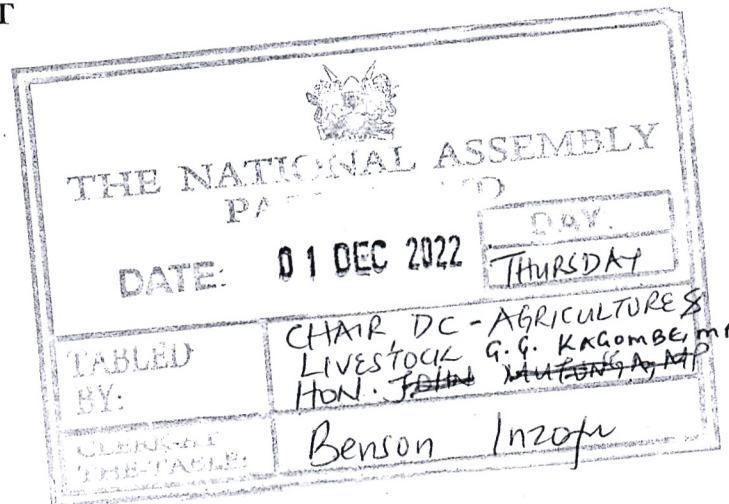 T
THE NATIONAL ASSEMBLY
DATE: 01 DEC 2022
DAY.
THURSDAY
TABLED
BY:
CHAIR, DC - AGRICULTURE &
LIVESTOCK G.G. KAGOMBE, MP
HON. JOHN MUTUNGA, MP
CLERK-AT
THE-TABLE:
Benson Inzofu